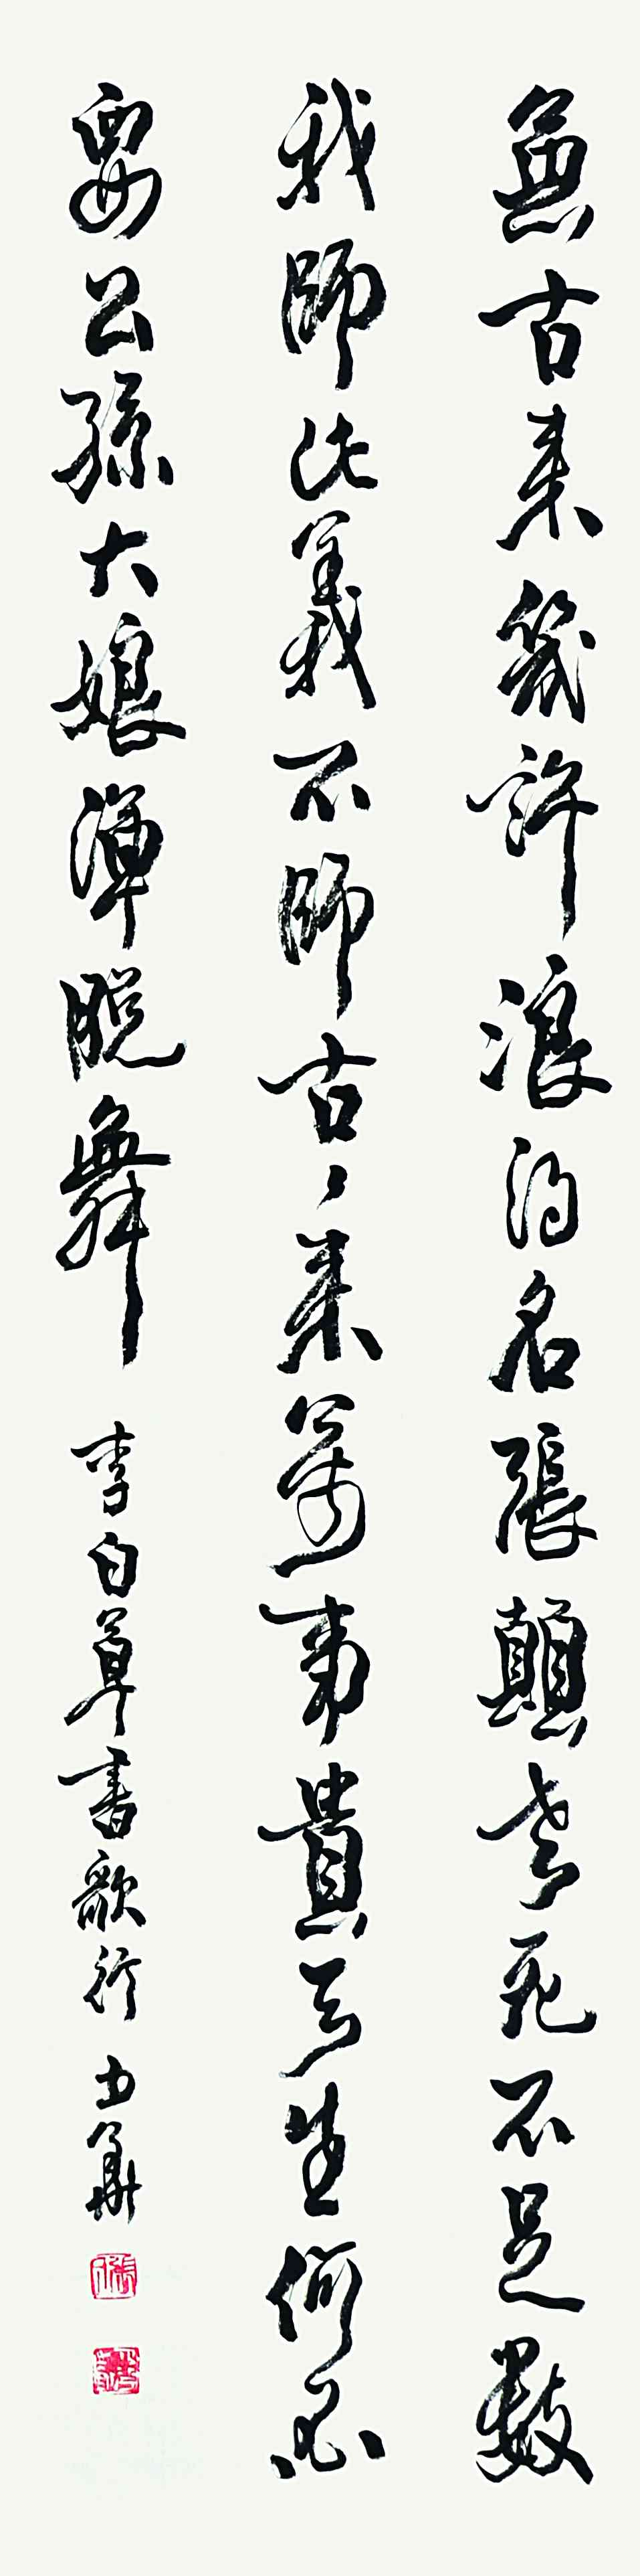 無古来幾許浪得名張顛老死不足數
我師此義不師古々来萬事貴天生何必
要公孫大娘渾脫舞 李白草書歌行 力華